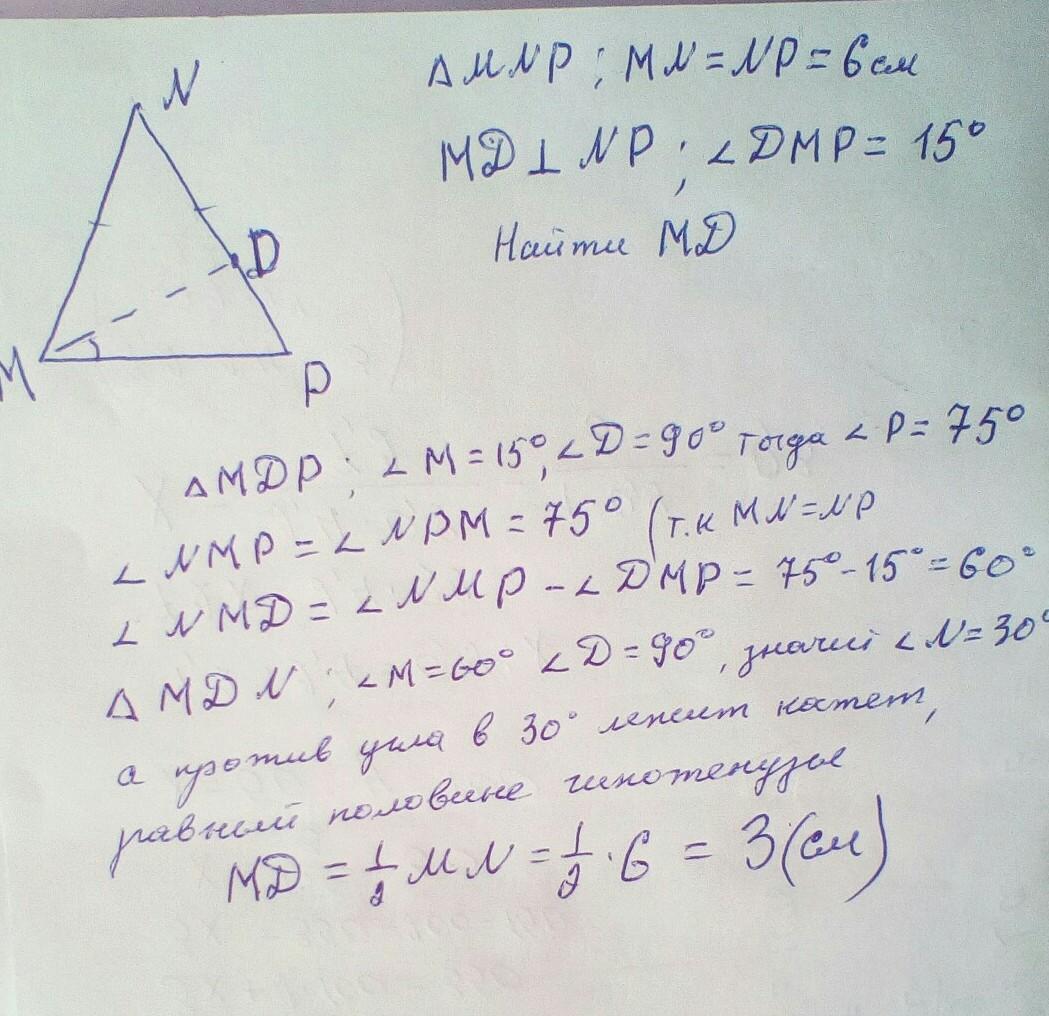 N
D
M
P
△MNP ; MN = NP = 6 см
MD ⊥ NP ; ∠DMP = 15°
Найти MD
△MDP ; ∠M = 15°, ∠D = 90° тогда ∠P = 75°
∠NMP = ∠NPM = 75° (т.к MN = NP
∠NMD = ∠NMP - ∠DMP = 75° - 15° = 60°
△MDN ; ∠M = 60° ∠D = 90°, значит ∠N = 30°
а против угла в 30° лежит катет,
равный половине гипотенузы
MD = 1/2 MN = 1/2 · 6 = 3 (см)